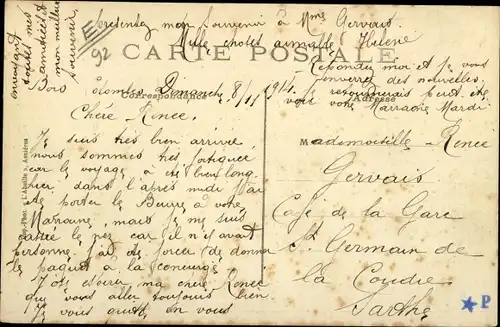 Présentez mon Souvenir à Mme Gervais.
Mille choses aimables Hélène
envoyant
toutes mes
amitiés et
mon meilleur
souvenir.
92
CARTE POSTALE
Répondez moi et je vous
enverrez des nouvelles.
Je retournerais peut être
voir votre Marraine Mardi
Bois Colombes Dimanche 8/11 1914.
Correspondance
Adresse
Chère Renée.
Je suis très bien arrivée
nous sommes très fatiguée
car le voyage a été bien long.
hier, dans l'après midi J'ai
été porter le Beurre à votre
Marraine, mais je me suis
cassée le nez car il n'y avait
personne. J'ai été forcée de donner
le paquet à la concierge.
J'ose espérer ma chère Renée
que vous allez toujours bien
Je vous quitte en vous
Mademoiselle Renée
Gervais
Café de la Gare
St Germain de
la Coudre
Sarthe
Phot. « L'Abeille », Asnières
P